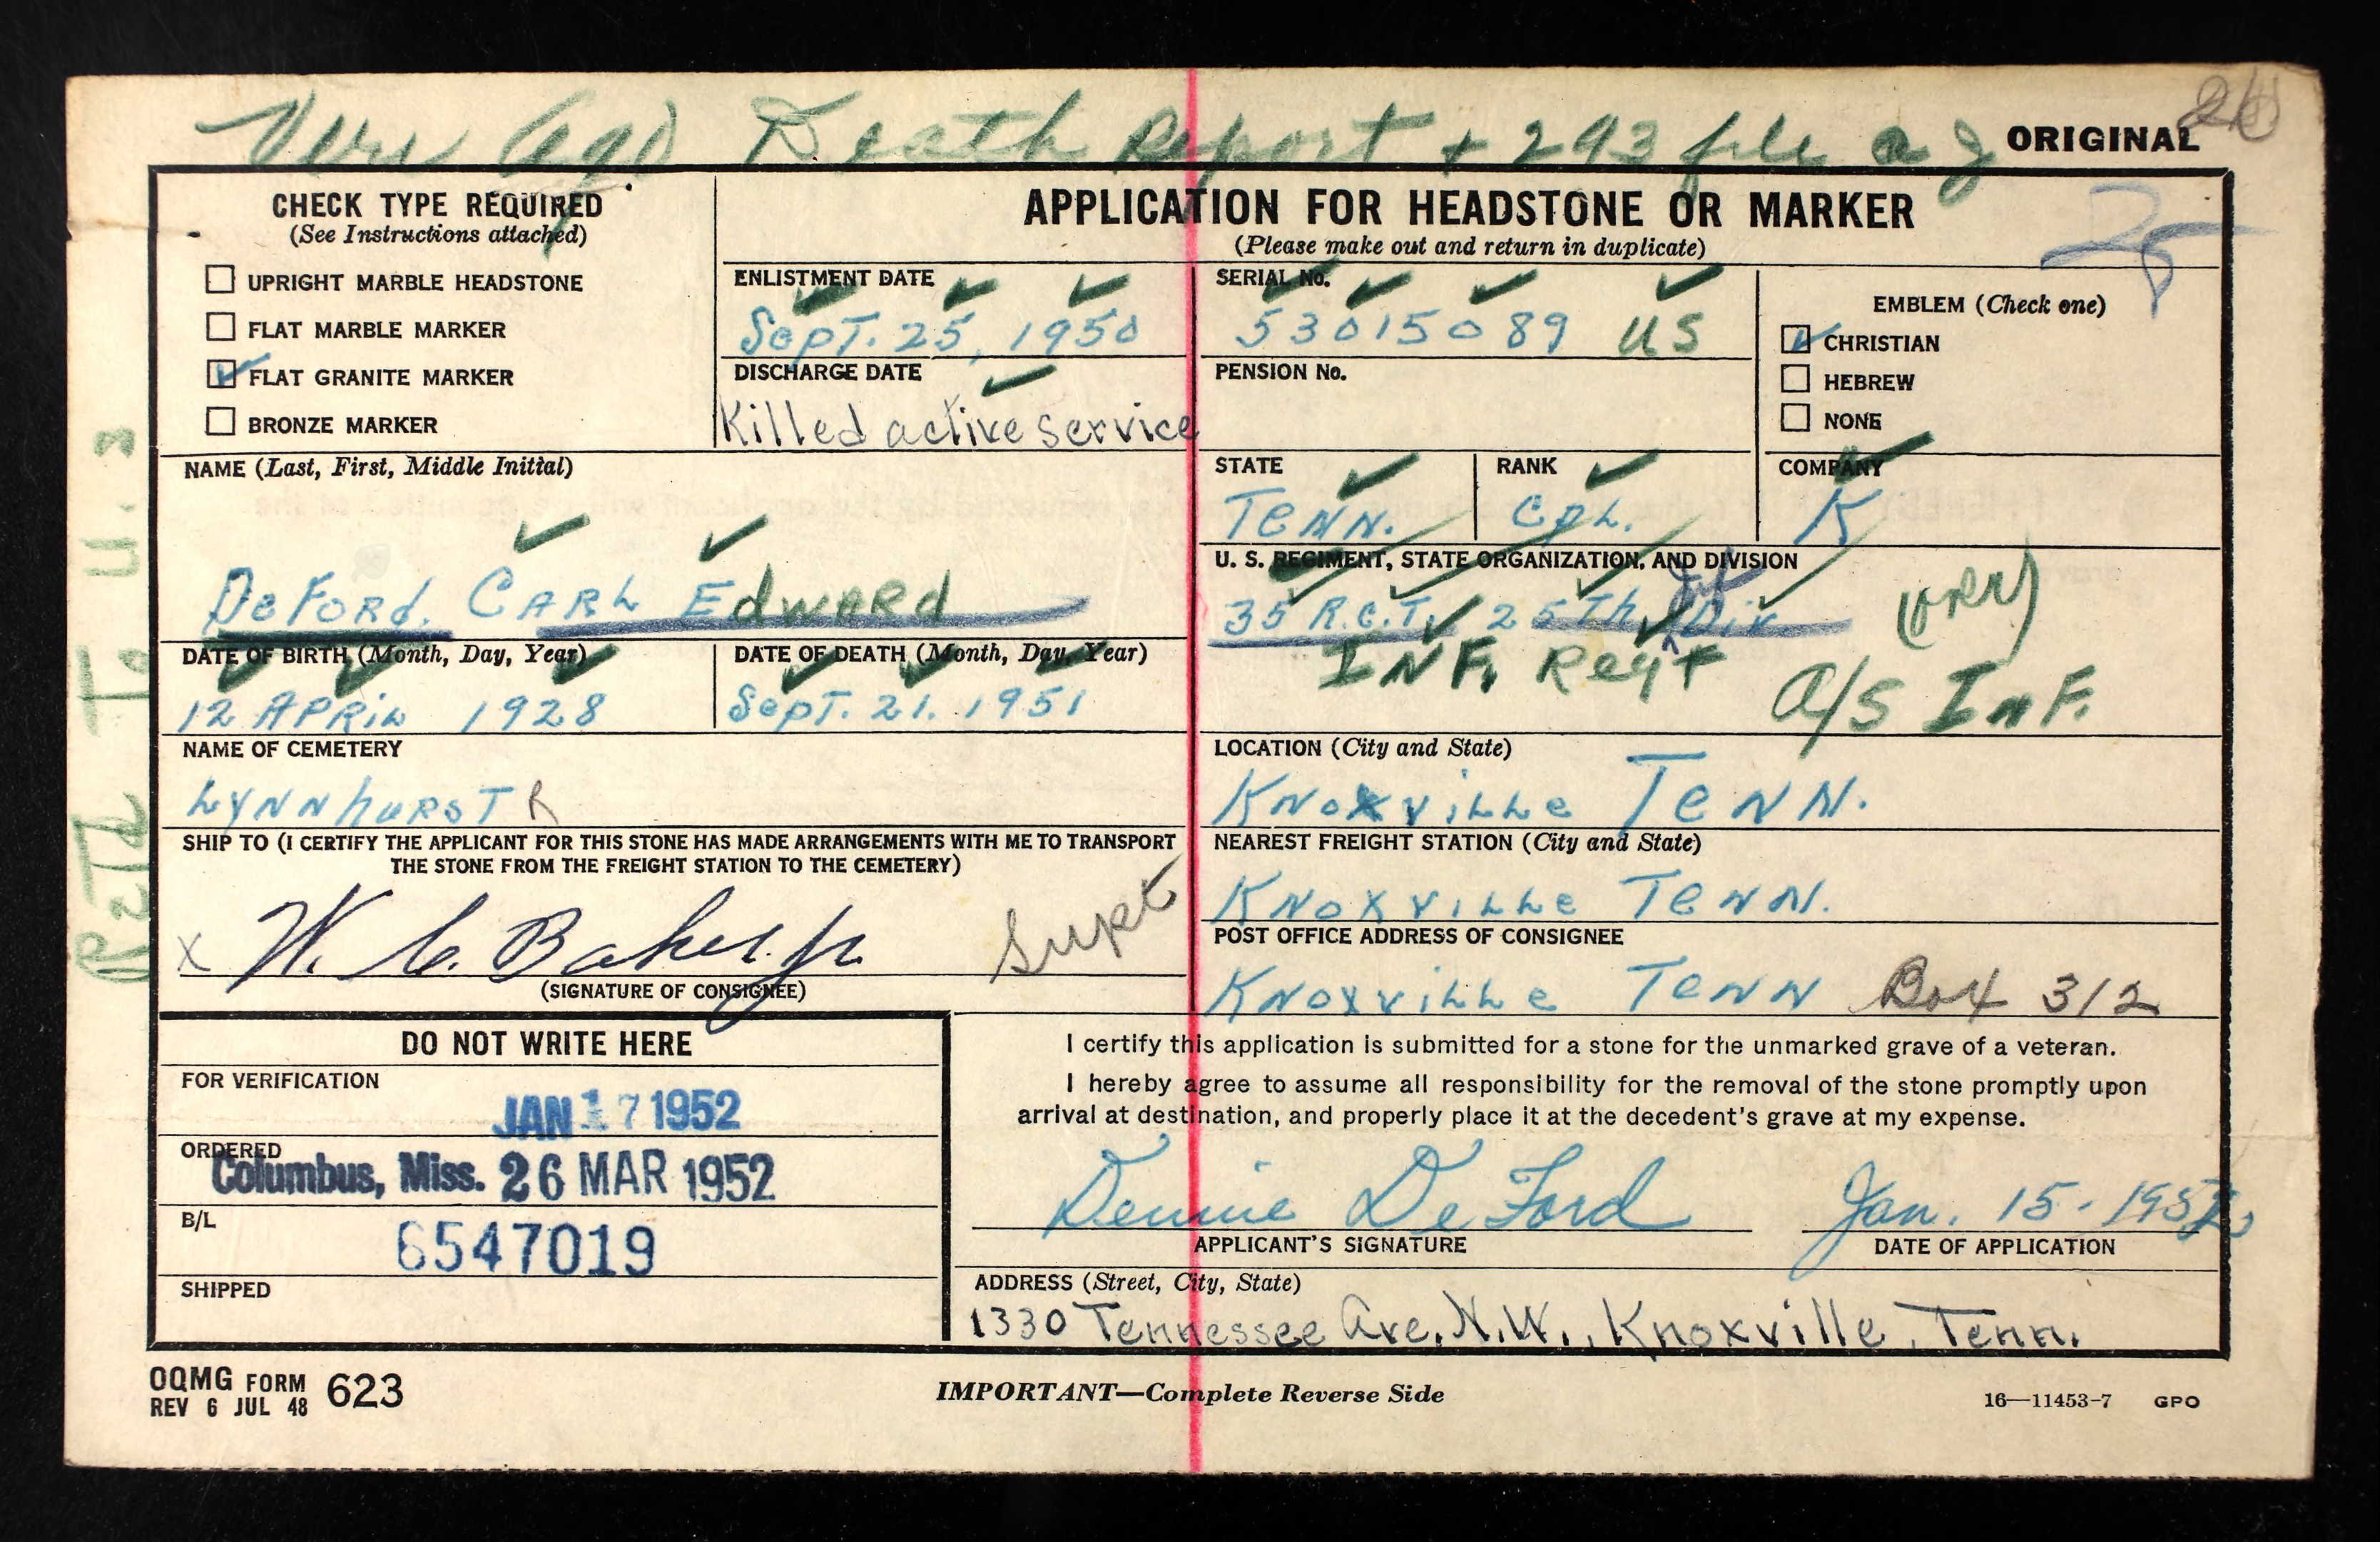 Death Report + 293 file
ORIGINAL
CHECK TYPE REQUIRED
(See Instructions attached)
UPRIGHT MARBLE HEADSTONE
FLAT MARBLE MARKER
FLAT GRANITE MARKER
BRONZE MARKER
APPLICATION FOR HEADSTONE OR MARKER
(Please make out and return in duplicate)
ENLISTMENT DATE
Sept. 25, 1950
DISCHARGE DATE
Killed active service
SERIAL No.
53015089 US
PENSION No.
EMBLEM (Check one)
CHRISTIAN
HEBREW
NONE
NAME (Last, First, Middle Initial)
DeFord, Carl Edward
STATE
Tenn.
RANK
Cpl.
COMPANY
K
U. S. REGIMENT, STATE ORGANIZATION, AND DIVISION
35 R.C.T. 25th Inf Div
INF. Regt
A/S Inf.
DATE OF BIRTH (Month, Day, Year)
12 April 1928
DATE OF DEATH (Month, Day, Year)
Sept. 21. 1951
NAME OF CEMETERY
Lynnhurst R
LOCATION (City and State)
Knoxville Tenn.
SHIP TO (I CERTIFY THE APPLICANT FOR THIS STONE HAS MADE ARRANGEMENTS WITH ME TO TRANSPORT
THE STONE FROM THE FREIGHT STATION TO THE CEMETERY)
x W. C. Baker, Jr. Supt
(SIGNATURE OF CONSIGNEE)
NEAREST FREIGHT STATION (City and State)
Knoxville Tenn.
POST OFFICE ADDRESS OF CONSIGNEE
Knoxville Tenn Box 312
DO NOT WRITE HERE
FOR VERIFICATION
JAN 17 1952
ORDERED
Columbus, Miss. 26 MAR 1952
B/L
6547019
SHIPPED
I certify this application is submitted for a stone for the unmarked grave of a veteran.
I hereby agree to assume all responsibility for the removal of the stone promptly upon
arrival at destination, and properly place it at the decedent's grave at my expense.
Dennie DeFord
APPLICANT'S SIGNATURE
Jan. 15 - 1952
DATE OF APPLICATION
ADDRESS (Street, City, State)
1330 Tennessee Ave. N.W., Knoxville, Tenn.
OQMG FORM 623
REV 6 JUL 48
IMPORTANT—Complete Reverse Side
16—11453-7 GPO
To U.S